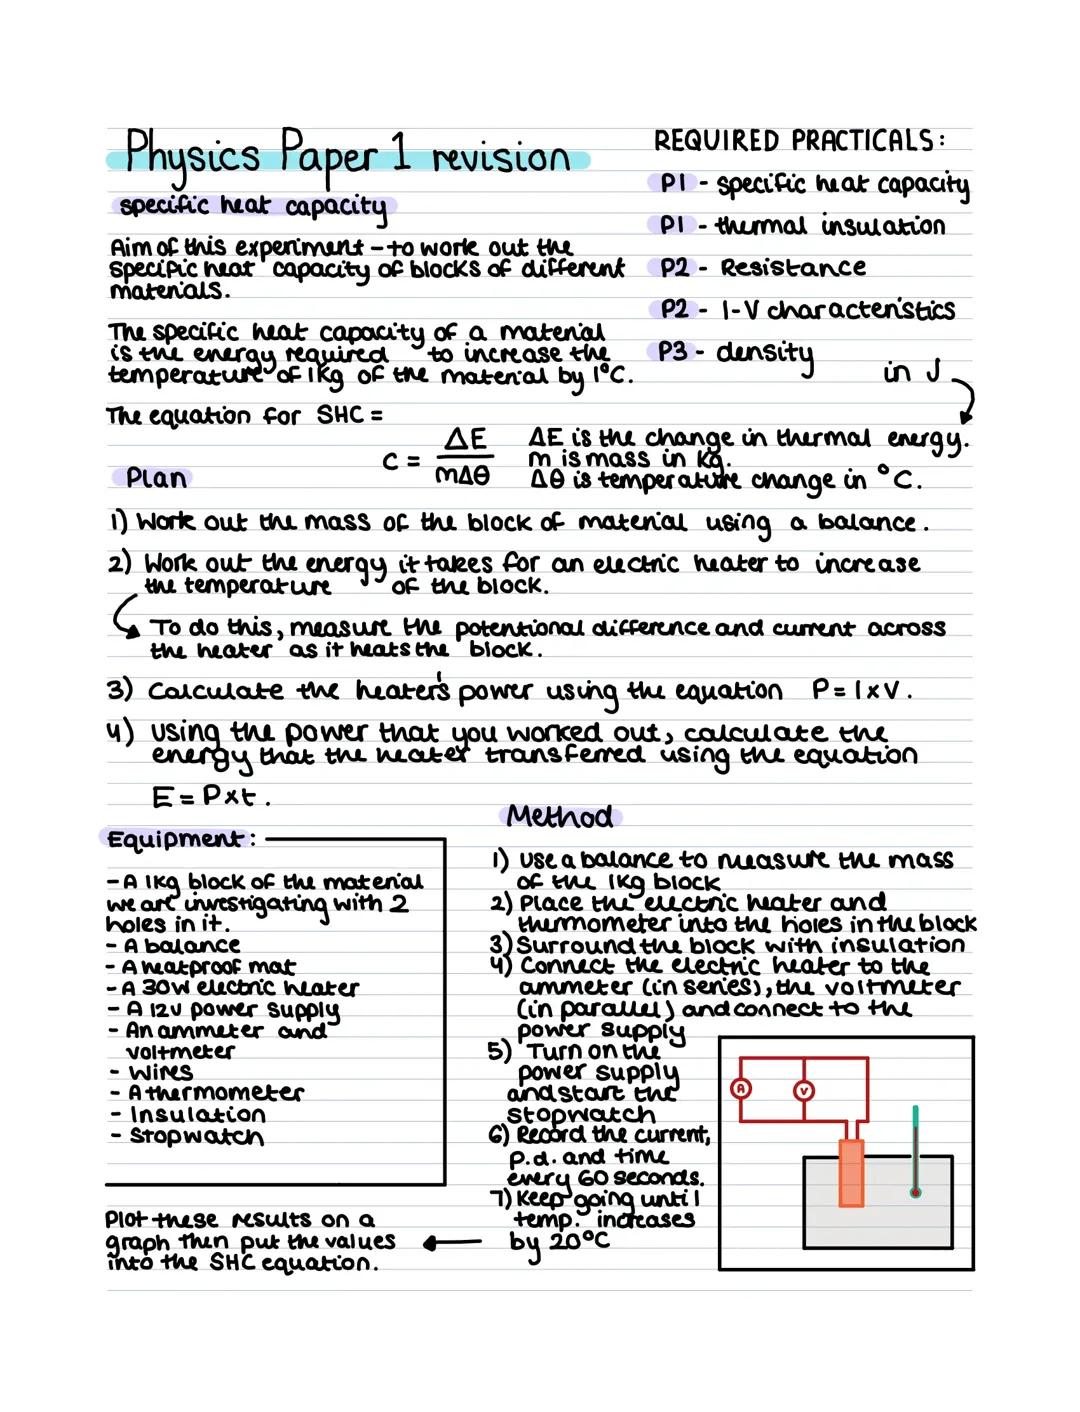 Physics Paper 1 revision
specific heat capacity
Aim of this experiment - to work out the
specific heat capacity of blocks of different
materials.
The specific heat capacity of a material
is the energy required to increase the
temperature of 1Kg of the material by 1°C.
The equation for SHC =
C = ΔE / mΔθ
REQUIRED PRACTICALS:
P1 - specific heat capacity
P1 - thermal insulation
P2 - Resistance
P2 - I-V characteristics
P3 - density
in J
ΔE is the change in thermal energy.
m is mass in Kg.
Δθ is temperature change in °C.
Plan
1) Work out the mass of the block of material using a balance.
2) Work out the energy it takes for an electric heater to increase
the temperature of the block.
To do this, measure the potentional difference and current across
the heater as it heats the block.
3) Calculate the heater's power using the equation P = I x V.
4) Using the power that you worked out, calculate the
energy that the heater transferred using the equation
E = P x t.
Equipment:
- A 1Kg block of the material
we are investigating with 2
holes in it.
- A balance
- A heatproof mat
- A 30W electric heater
- A 12V power supply
- An ammeter and
voltmeter
- Wires
- A thermometer
- Insulation
- Stopwatch
Method
1) Use a balance to measure the mass
of the 1Kg block
2) Place the electric heater and
thermometer into the holes in the block
3) Surround the block with insulation
4) Connect the electric heater to the
ammeter (in series), the voltmeter
(in parallel) and connect to the
power supply
5) Turn on the
power supply
and start the
stopwatch
6) Record the current,
p.d. and time
every 60 seconds.
7) Keep going until
temp. increases
by 20°C
Plot these results on a
graph then put the values
into the SHC equation.
A
V